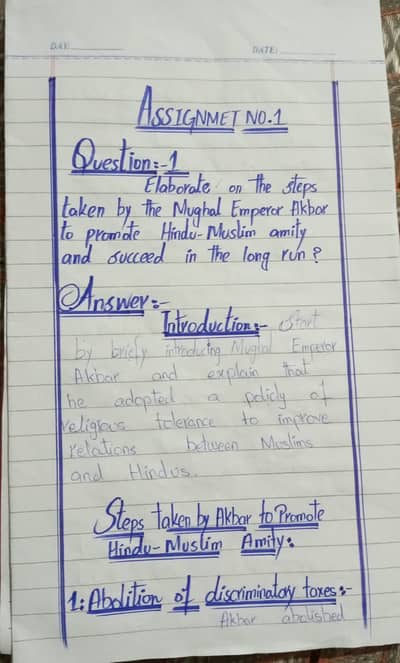 DAY:
DATE:
ASSIGNMET NO.1
Question:-1
Elaborate on the steps
taken by the Mughal Emperor Akbar
to promote Hindu-Muslim amity
and succeed in the long run?
Answer:-
Introduction:- Start
by briefly introducing Mughal Emperor
Akbar and explain that
he adopted a policy of
religious tolerance to improve
relations between Muslims
and Hindus.
Steps taken by Akbar to Promote
Hindu-Muslim Amity:
1: Abolition of discriminatory taxes:-
Akbar abolished